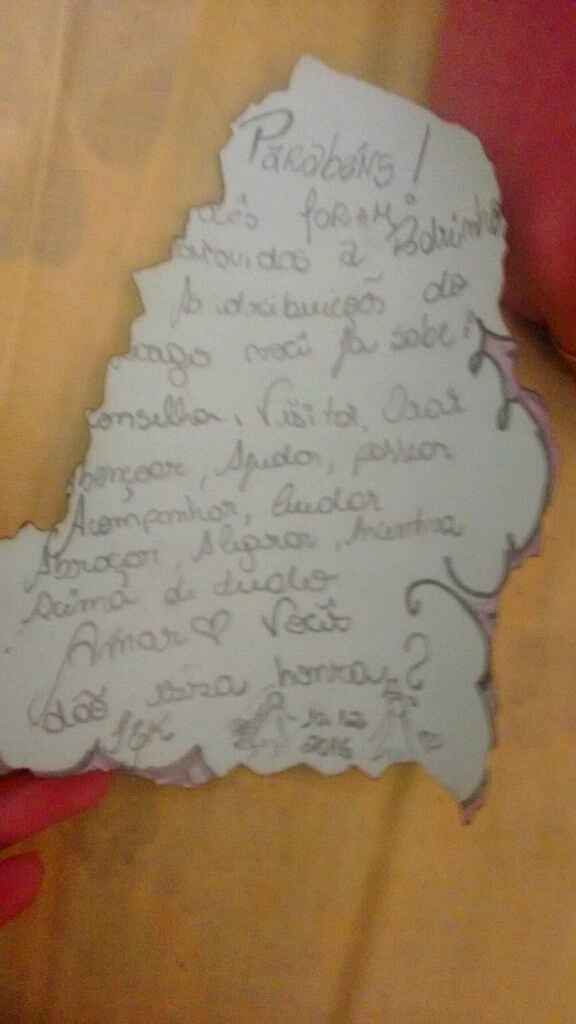 Parabéns!
cês foram
Padrinho
As atribuições do
cargo você já sabe:
conselhar, Visitar, Orar
abençoar, Ajudar, passear
Acompanhar, Cuidar
Abraçar, Alegrar, Incentivar
Acima de tudo
Amar ♡ Vocês
dão essa honra?
12.12
2016